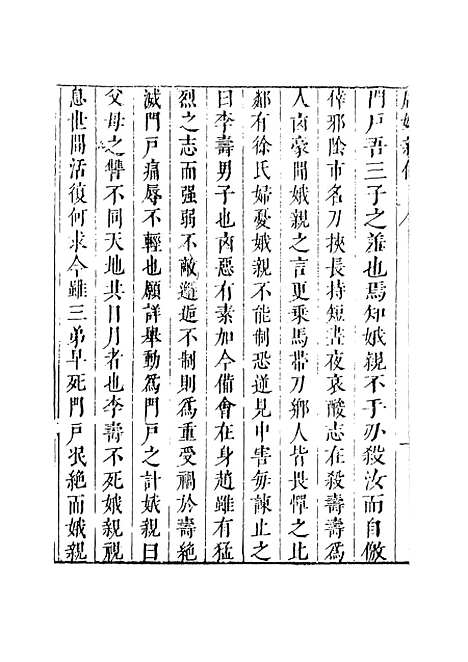 門戶吾三子之羞也焉知娥親不手刃殺汝而自儌
倖邪陰市名刀挾長持短晝夜哀酸志在殺壽壽為
人凶豪聞娥親之言更乘馬帶刀鄉人皆畏憚之比
鄰有徐氏婦憂娥親不能制恐逆見中害每諫止之
曰李壽男子也凶惡有素加今備衛在身趙雖有猛
烈之志而強弱不敵邂逅不制則為重受禍於壽絕
滅門戶痛辱不輕也願詳舉動為門戶之計娥親曰
父母之讐不同天地共日月者也李壽不死娥親視
息世間活復何求今雖三弟早死門戶泯絕而娥親